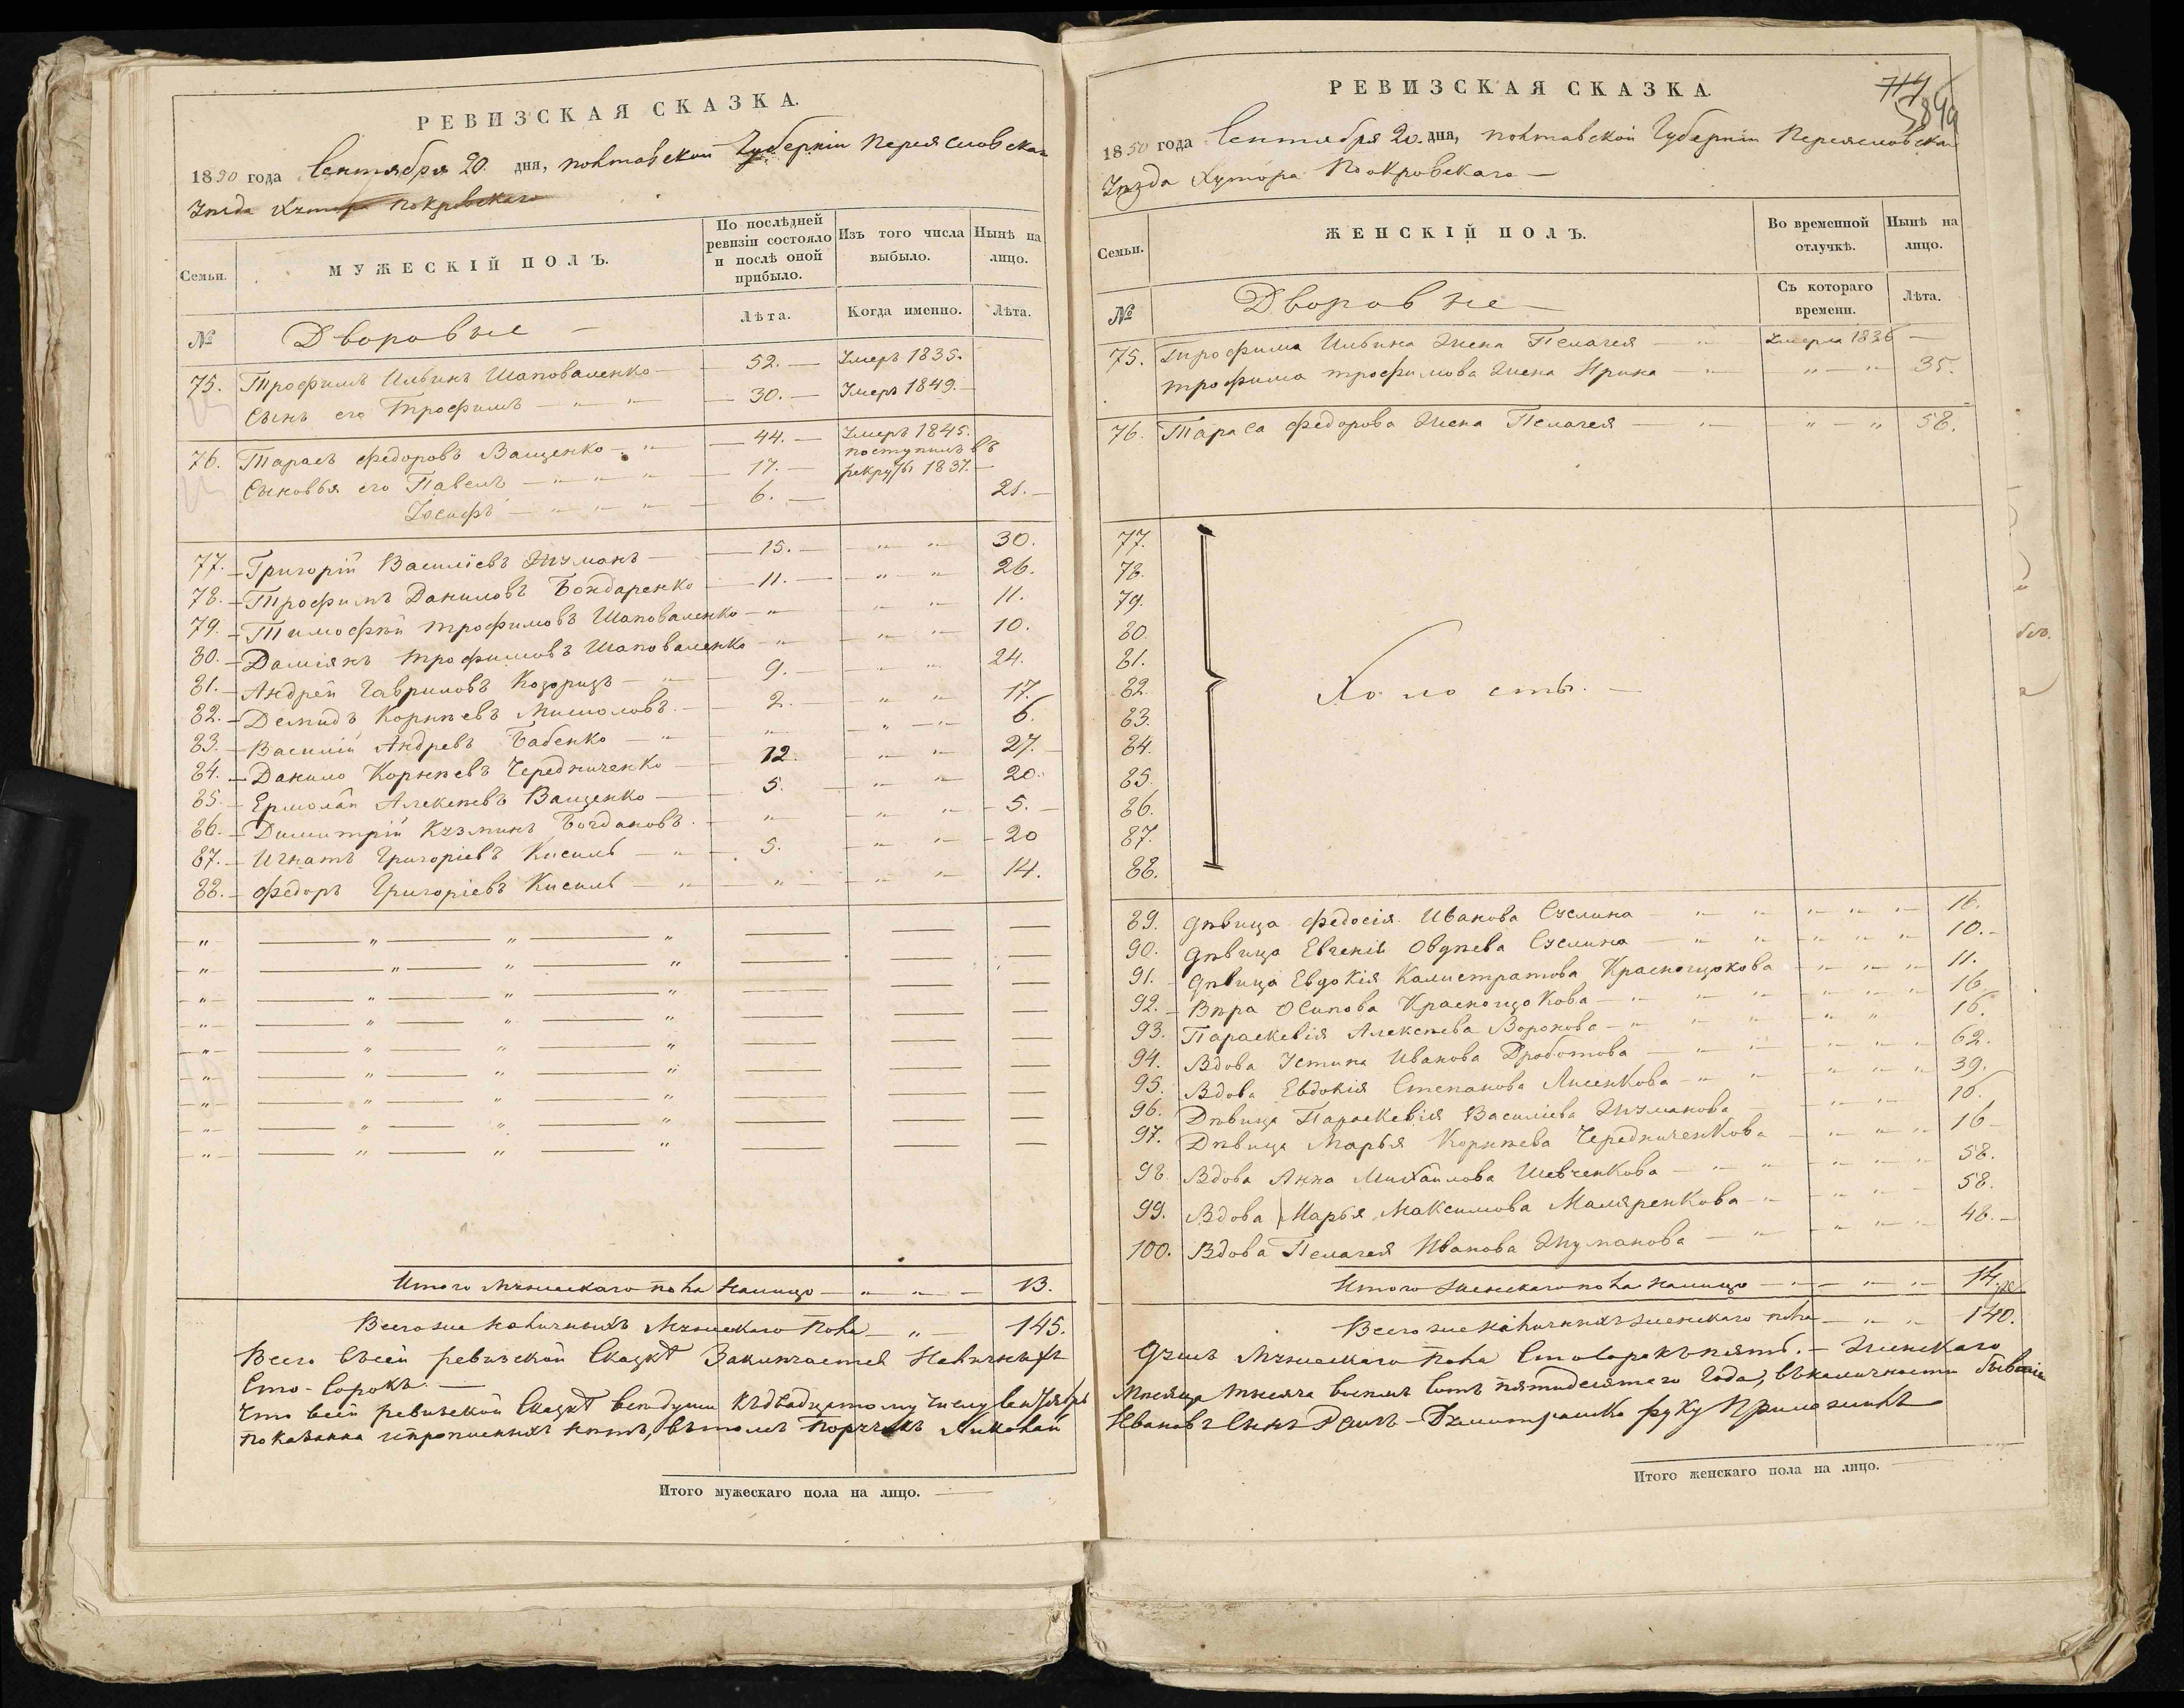 РЕВИЗСКАЯ СКАЗКА.
1850 года Сентября 20. дня, Полтавской Губерніи Переясловскаго
Уѣзда Хутора Покровскаго
Семьи.
МУЖЕСКІЙ ПОЛЪ.
По послѣдней ревизіи состояло и послѣ оной прибыло.
Изъ того числа выбыло.
Нынѣ на лицо.
№
Дворовые
Лѣта.
Когда именно.
Лѣта.
75. Трофимъ Ильинъ Шаповаленко 52. Умеръ 1835.
Сынъ его Трофимъ 30. Умеръ 1849.
76. Тарасъ Федоровъ Ващенко 44. Умеръ 1845.
Сыновья его Павелъ 17. поступилъ въ рекруты 1837.
Іосифъ 6. 21.
77. Григорій Василіевъ Шуманъ 15. " " 30.
78. Трофимъ Даниловъ Бондаренко 11. " " 26.
79. Тимофѣй Трофимовъ Шаповаленко " " " 11.
80. Даміянъ Трофимовъ Шаповаленко " " " 10.
81. Андрей Гавриловъ Козоризъ 9. " " 24.
82. Демидъ Корнѣевъ Миколовъ 2. " " 17.
83. Василій Андреевъ Бабенко " " " 6.
84. Данило Корнѣевъ Чередниченко 12. " " 27.
85. Ермолай Алексѣевъ Ващенко 5. " " 20.
86. Димитрій Кузминъ Богдановъ " " " 5.
87. Игнатъ Григоріевъ Кисиль 5. " " 20
88. Федоръ Григоріевъ Кисиль " " " 14.
Итого мужескаго пола налицо 13.
Всего же наличныхъ Мужескаго пола 145.
Всего въ сей ревизской Сказкѣ Заключается Наличныхъ
Сто-Сорокъ.
Что въ сей ревизской Сказкѣ всѣ души къ двадцатому числу Сентября
показанна и прописныхъ нѣтъ, въ томъ Поручикъ Николай
Итого мужескаго пола на лицо.
РЕВИЗСКАЯ СКАЗКА.
714
1850 года Сентября 20. дня, Полтавской Губерніи Переясловскаго
Уѣзда Хутора Покровскаго
Семьи.
ЖЕНСКІЙ ПОЛЪ.
Во временной отлучкѣ.
Нынѣ на лицо.
№
Дворовые
Съ котораго времени.
Лѣта.
75. Трофима Ильина жена Пелагея Умерла 1836
Трофима Трофимова жена Ирина " " 35.
76. Тараса Федорова жена Пелагея " " 58.
77.
78.
79.
80.
81.
82. Холосты.
83.
84.
85.
86.
87.
88.
89. дѣвица Федосія Иванова Сулима 16.
90. дѣвица Евгенія Овдѣева Сулима 10.
91. дѣвица Евдокія Калистратова Краснощокова 11.
92. Вѣра Осипова Краснощокова 16
93. Параскевія Алексѣева Воронова 16.
94. Вдова Устина Иванова Дроботова 62.
95. Вдова Евдокія Степанова Лисенкова 39.
96. Дѣвица Параскевія Василіева Шуманова 16.
97. Дѣвица Марья Корнѣева Чередниченкова 16
98 Вдова Анна Михайлова Шевченкова 58.
99. Вдова Марья Максимова Маляренкова 58.
100. Вдова Пелагея Иванова Шуманова 48.
Итого женскаго пола налицо 14.
Всего же наличныхъ женскаго пола 140.
Душъ Мужескаго пола Сто Сорокъ пять. Женскаго
Мѣсяца тысяча восемь сотъ пятидесятаго Года, въ наличности бывшіе
Ивановъ Сынъ Димитрашко руку приложилъ
Итого женскаго пола на лицо.